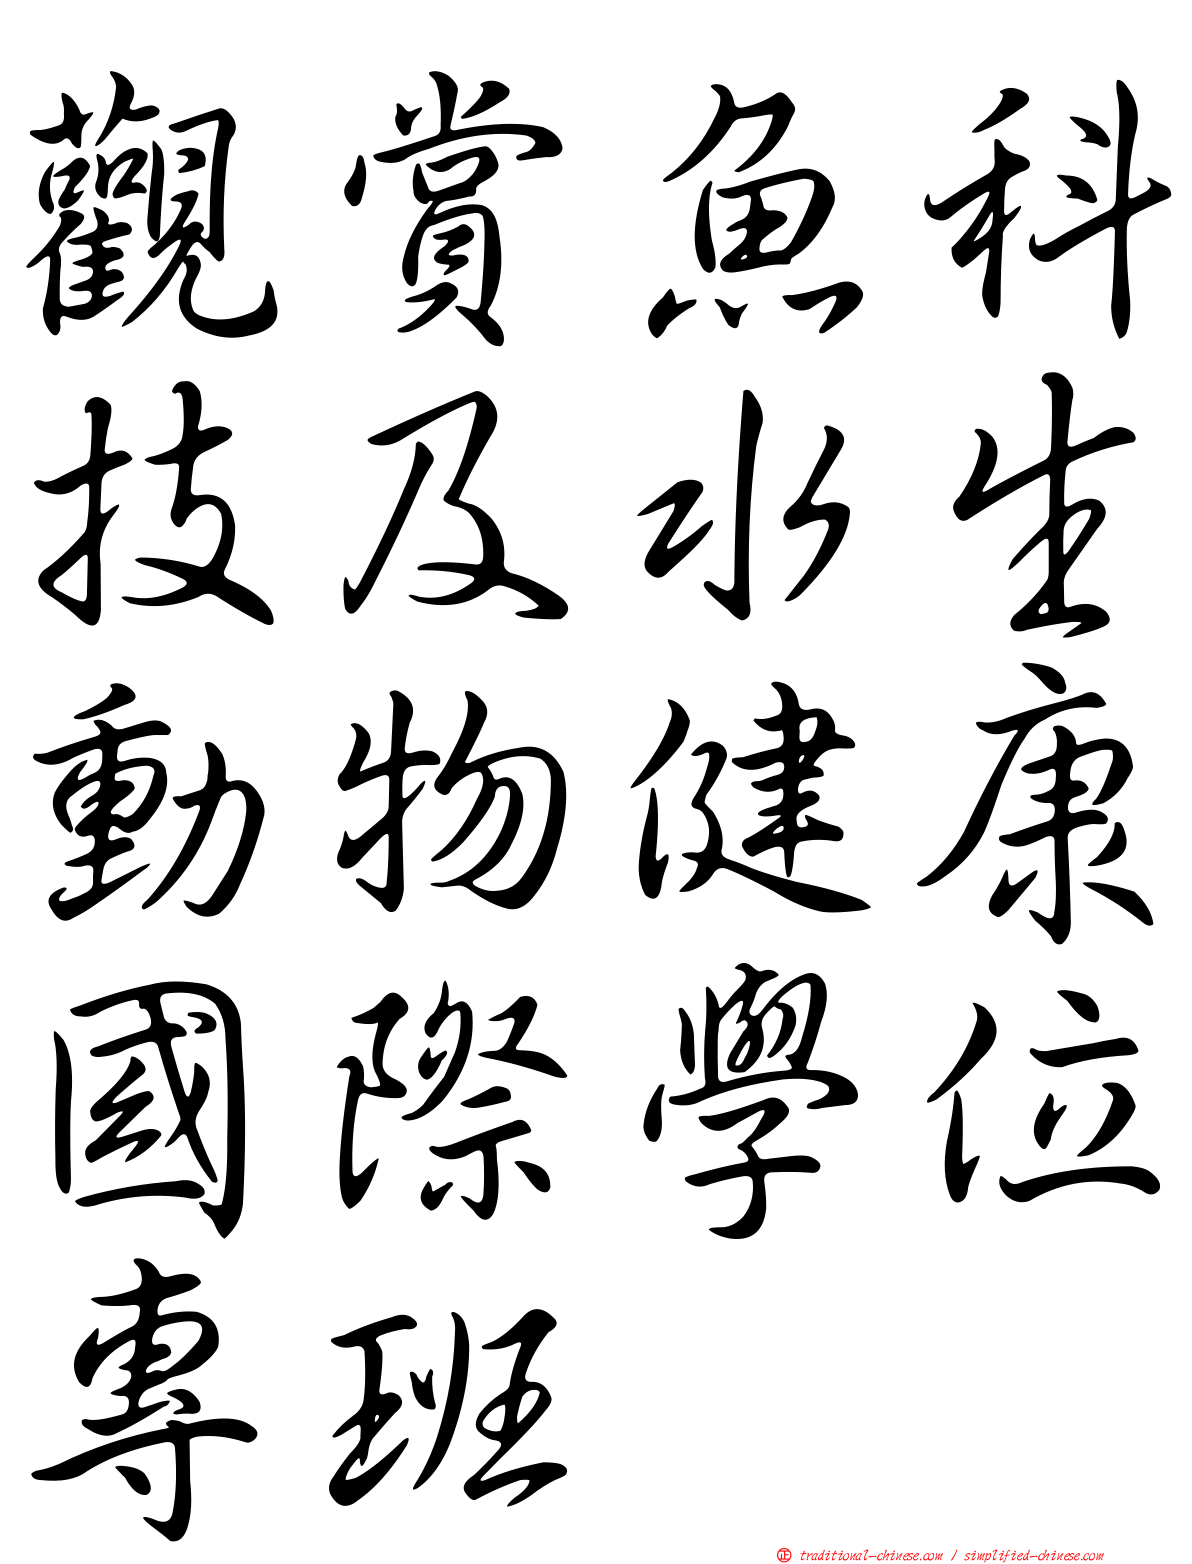 觀賞魚科
技及水生
動物健康
國際學位
專班
正 traditional-chinese.com / simplified-chinese.com